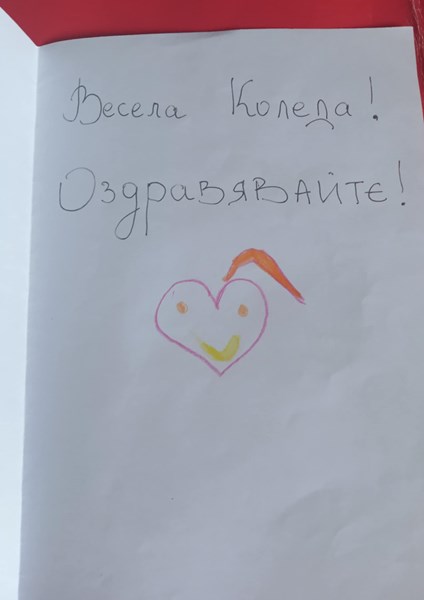 Весела Коледа!
Оздравявайте!